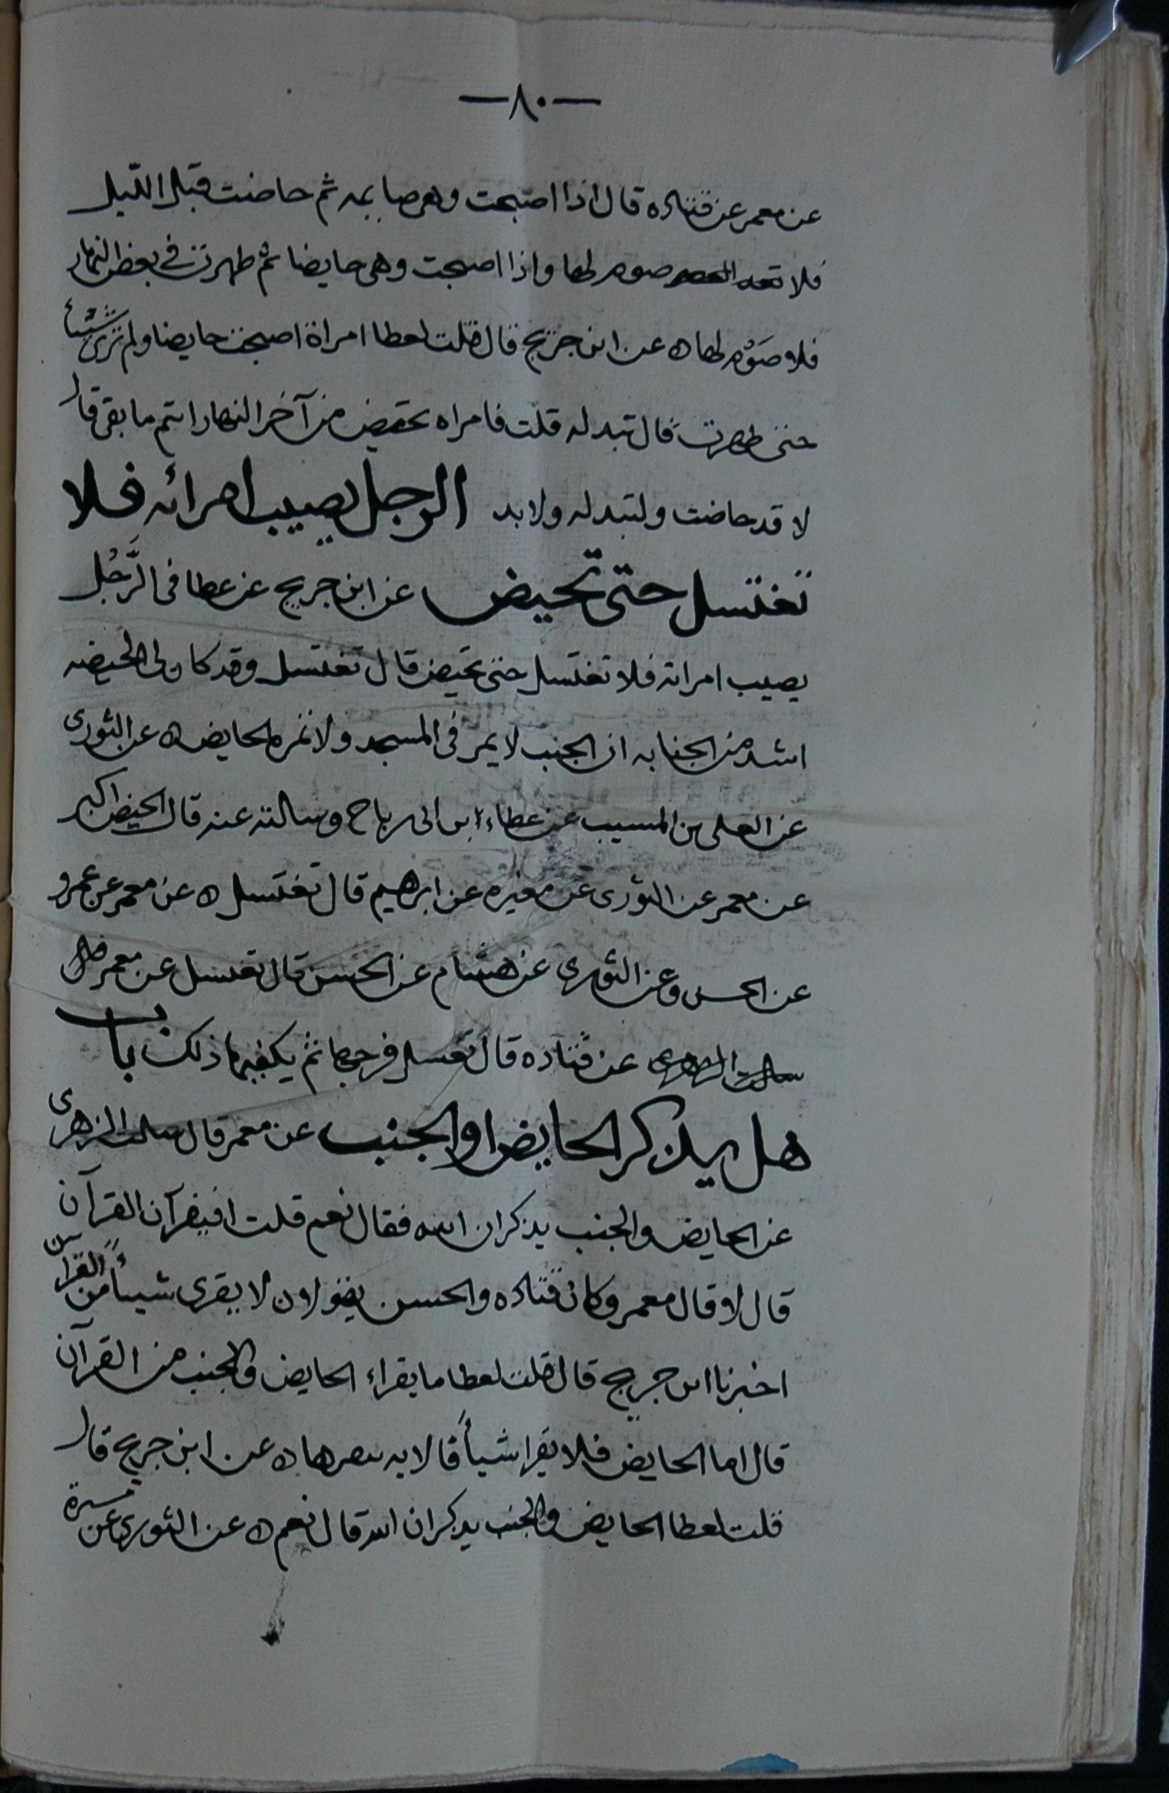 —٨٠—
عن معمر عن قتاده قال اذا اصبحت وهى صايمه ثم حاضت قبل الليل
فلا صوم لها واذا اصبحت وهى حايضا ثم طهرت فى بعض النهار
فلا صَوْم لها ه عن ابن جريج قال قلت لعطا امراة اصبحت حايضا ولم ترى شيئاً
حتى طهرت قال تبدله قلت فامراه تحيض من آخر النهار اتتم ما بقى قال
لا قد حاضت ولتبدله ولا بد الرجل يصيب امرأته فلا
تغتسل حتى تحيض عن ابن جريج عن عطا فى الرَّجُل
يصيب امراته فلا تغتسل حتى تحيض قال تغتسل وقد كان لى الحيضه
اشد من الجنابه ان الجنب لا يمر فى المسجد ولا تمره الحايض ه عن الثورى
عن العلى بن المسيب عن عطاء ابن ابى رباح وسالته عنه قال الحيض اكبر
عن معمر عن الثورى عن مغيره عن ابرهيم قال تغتسل ه عن معمر عن عمرو
عن الحسن وعن الثورى عن هشام عن الحسن قال تغتسل عن معمر قال
سالت الزهرى عن قتاده قال تغسل فرجها ثم يكفيها ذلك باب
هل يذكر الحايض والجنب عن معمر قال سالت الزهرى
عن الحايض والجنب يذكران الله فقال نعم قلت افيقرآن القرآن
قال لا وقال معمر وكان قتاده والحسن يقولان لا يقرى شيئاً من القرآن
اخبرنا ابن جريج قال قلت لعطا ما يقراء الحايض والجنب من القرآن
قال اما الحايض فلا يقرا شيأً قال ايه ه عن ابن جريج قال
قلت لعطا الحايض والجنب يذكران الله قال نعم ه عن الثورى عن